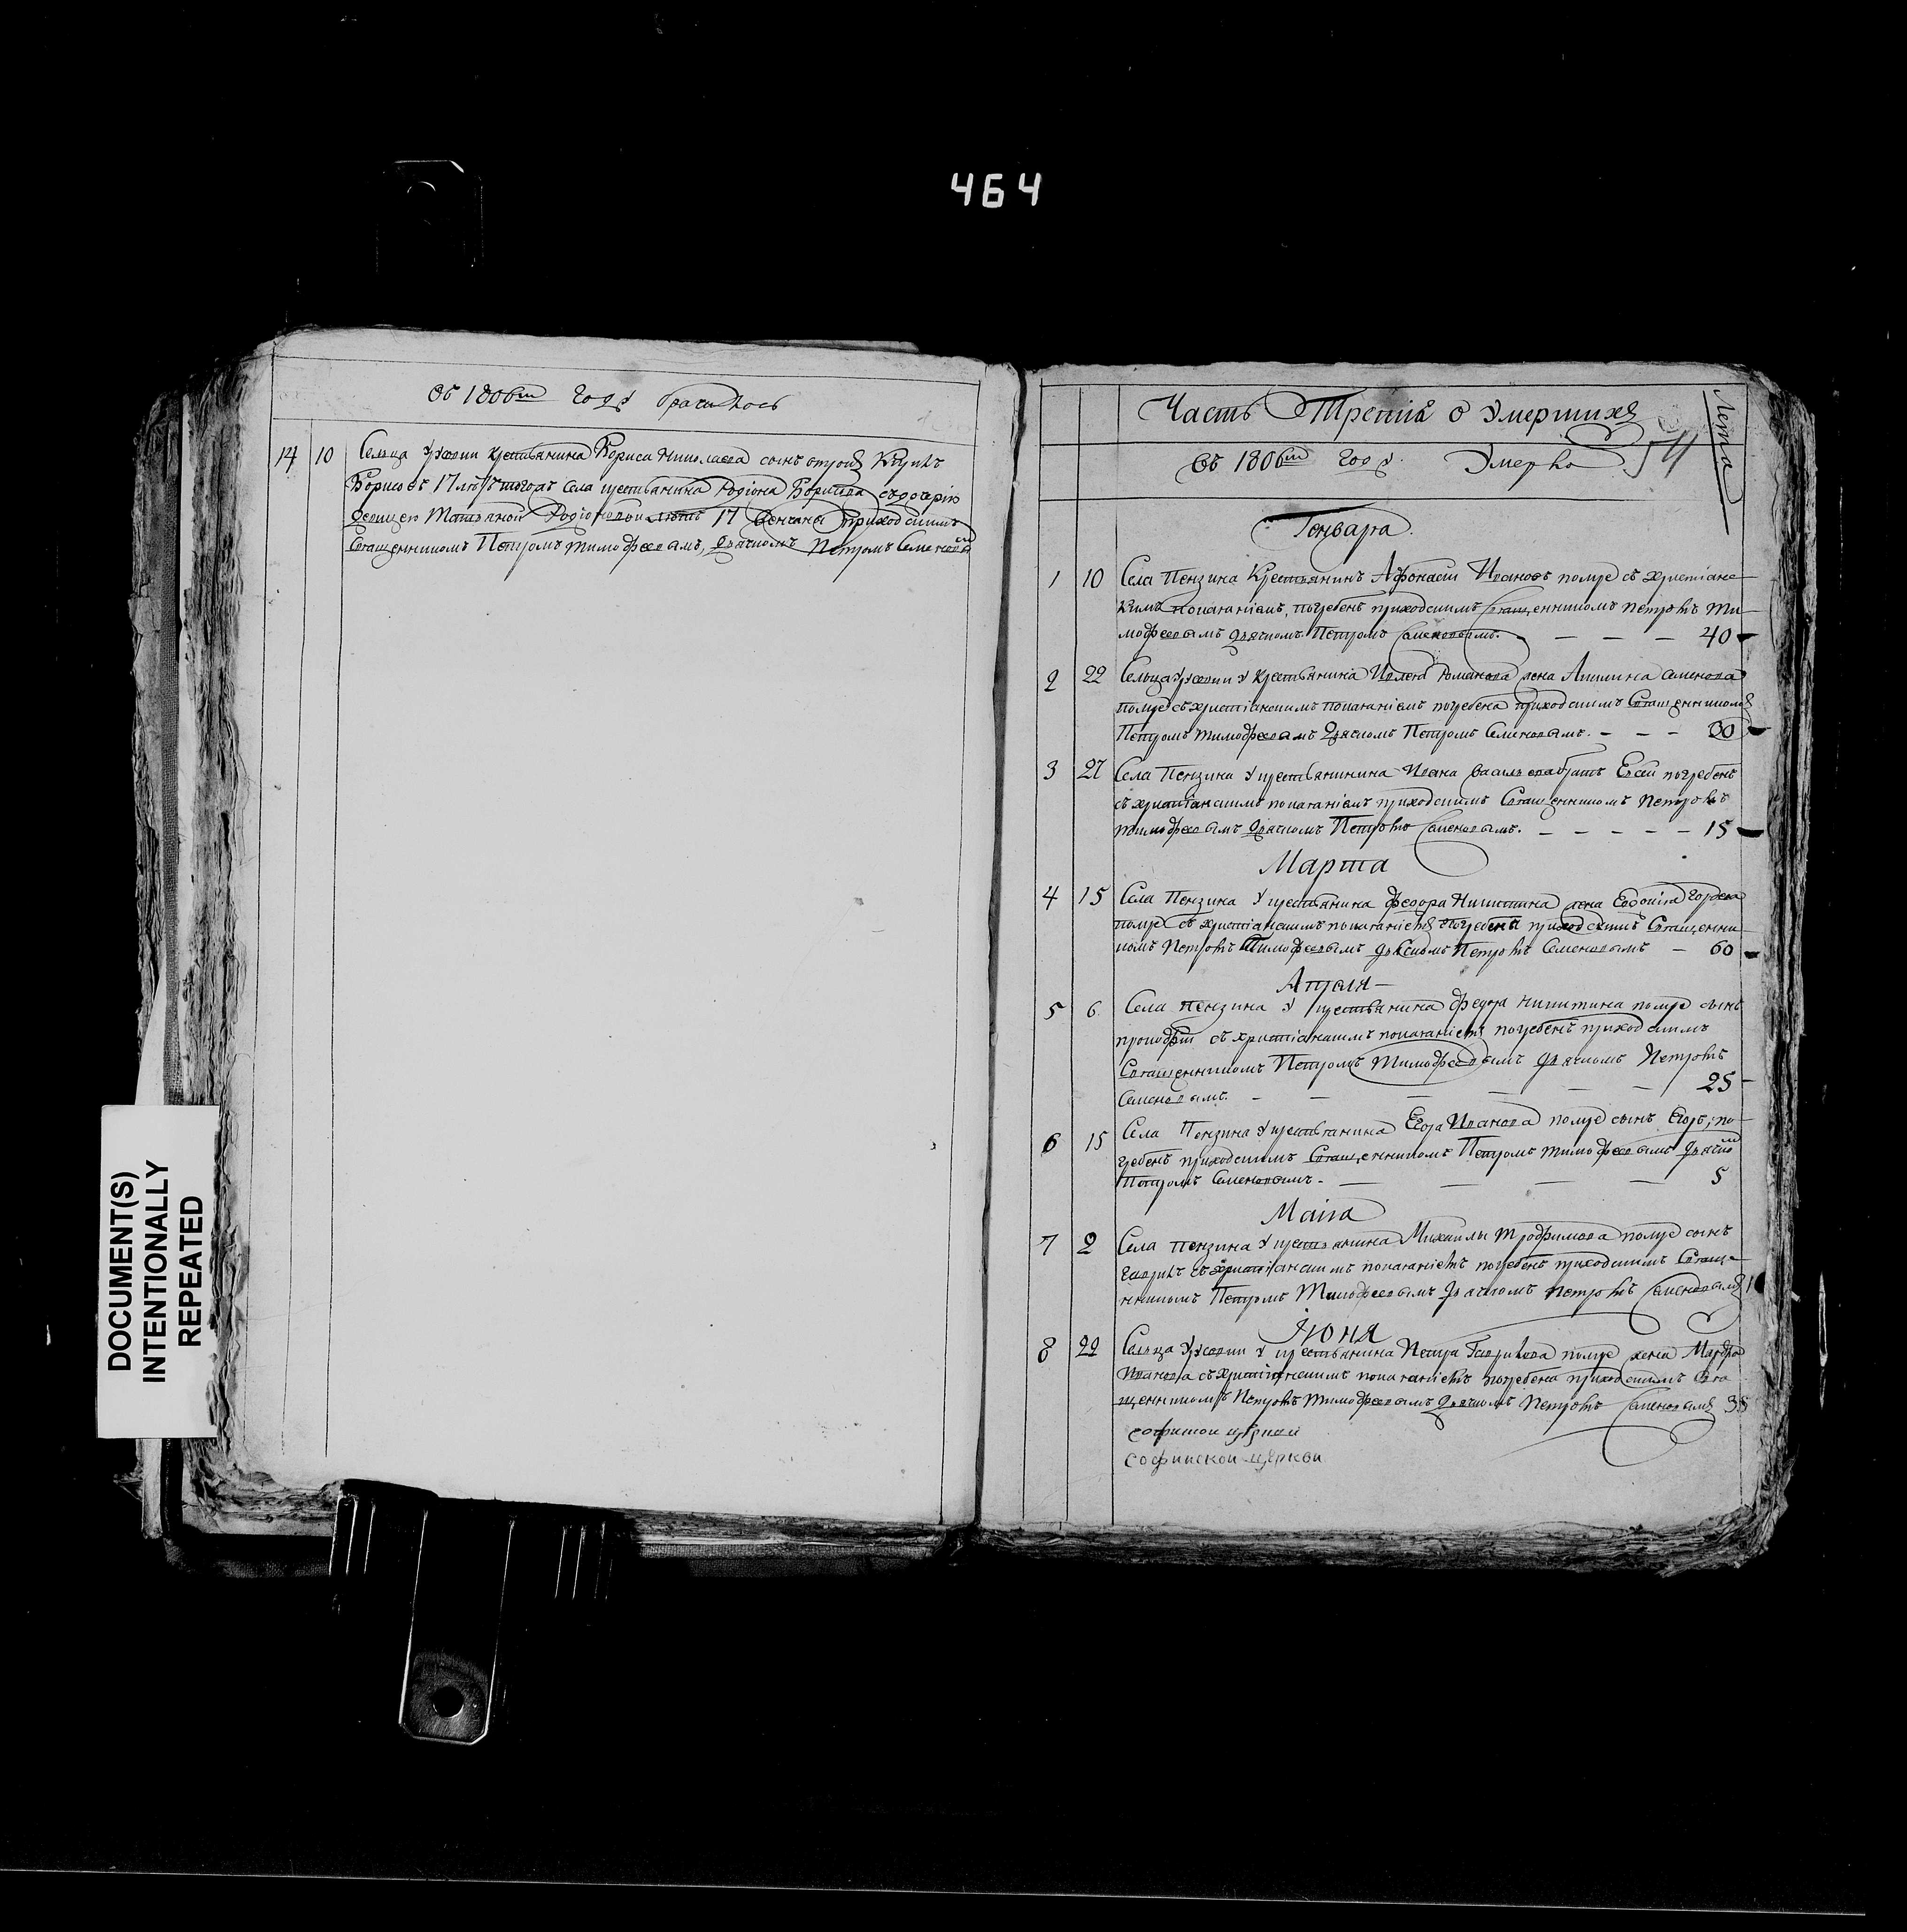 464
Въ 1806м году бракилось
14 10 Сельца крестьянина Бориса Николаева сынъ отрокъ
Борисовъ 17 лѣтъ тогожъ села крестьянина Родіона Борисова съ дочерію
девицею Татьяной Родіоновой лѣтъ 17 венчаны приходскимъ
Священникомъ Петромъ Тимофеевымъ, дьячкомъ Петромъ Семеновым
Часть Третія о Умершихъ
Лета
Въ 1806м году Умерло 54
Генваря
1 10 Села Пензина Крестьянинъ Афонасей Ивановъ помре съ христианс
кимъ покаганіемъ, погребенъ приходскимъ Священникомъ Петромъ Ти
мофеевымъ дьячкомъ Петромъ Семеновымъ. 40
2 22 Сельца у Крестьянина Романова жена Акилина Семенова
помре съ христіанскимъ покаганіемъ погребена приходскимъ Священникомъ
Петромъ Тимофеевымъ дьячкомъ Петромъ Семеновымъ. 30
3 27 Села Пензина у крестьянинина Ивана Васильева братъ Евсей погребенъ
съ христіанскимъ покаганіемъ приходскимъ Священникомъ Петромъ
тимофеевымъ дьячкомъ Петромъ Семеновымъ. 15
Марта
4 15 Села Пензина у крестьянина Федора Никитина жена Евдокіа Гордева
помре съ христіанскимъ покаганіемъ погребена приходскимъ Священни
комъ Петромъ Тимофеевымъ дьячкомъ Петромъ Семеновымъ 60
Апреля
5 6 Села Пензина у крестьянина Федора Никитина помре сынъ
прокофей съ христіанскимъ покаганіемъ погребенъ приходскимъ
Священникомъ Петромъ Тимофеевымъ дьячкомъ Петромъ
Семеновымъ. 25
6 15 Села Пензина у крестьянина Егора Иванова помре сынъ Егоръ, по
гребенъ приходскимъ Священникомъ Петромъ тимофеевымъ дьячком
Петромъ Семеновымъ. 5
Маиа
7 2 Села пензина у крестьянина Михаилы Трофимова помре сынъ
Гаврилъ съ христіанскимъ покаганіемъ погребенъ приходскимъ Свяще
нникомъ Петромъ Тимофеевымъ дьячкомъ Петромъ Семеновымъ 1
Іюня
8 22 Сельца у крестьянина Петра Гаврилова помре жена Марфа
Иванова съ христіанскимъ покаганіемъ погребена приходскимъ Свя
щенникомъ Петромъ Тимофеевымъ дьячкомъ Петромъ Семеновымъ 35
софискои церкви
софийской церкви
DOCUMENT(S)
INTENTIONALLY
REPEATED